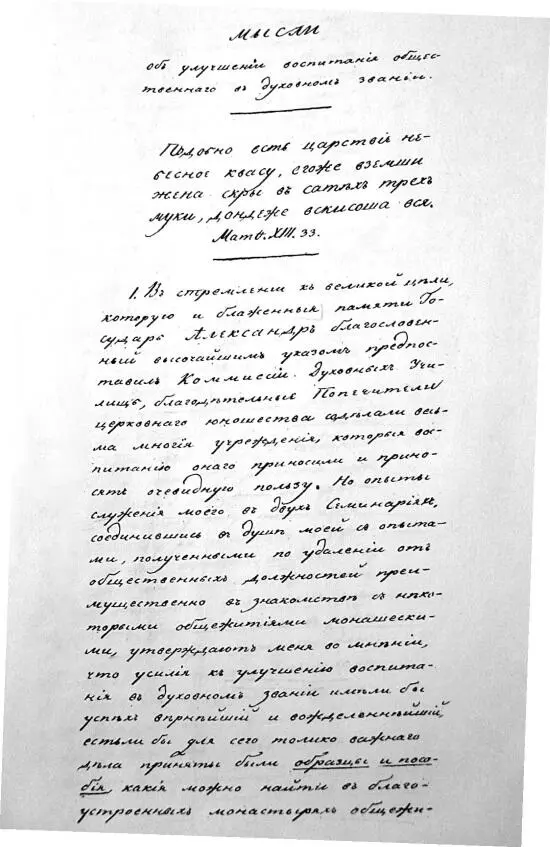 Мысли
объ улучшеніи воспитанія общес-
твеннаго въ духовномъ званіи.
Подобно есть царствіе не-
бесное квасу, егоже вземши
жена скры въ сатѣхъ трехъ
муки, дондеже вскисоша вся.
Матѳ. XIII. 33.
1. Въ стремленіи къ великой цѣли,
которую и блаженныя памяти Го-
сударь Александръ благословен-
ный высочайшимъ указомъ предпос-
тавилъ Коммиссіи Духовныхъ Учи-
лищъ, благодѣтельные Попечители
церковнаго юношества сдѣлали весь-
ма многія учрежденія, которыя вос-
питанію онаго приносили и прино-
сятъ очевидную пользу. Но опыты
служенія моего въ двухъ Семинаріяхъ,
соединившись въ душѣ моей съ опыта-
ми, полученными по удаленіи отъ
общественныхъ должностей преи-
мущественно въ знакомствѣ съ нѣко-
торыми общежитіями монашески-
ми, утверждаютъ меня во мнѣніи,
что усилія къ улучшенію воспита-
нія въ духовномъ званіи имѣли бы
успѣхъ вѣрнѣйшій и вожделеннѣйшій,
естьли бы для сего толико важнаго
дѣла приняты были образцы и посо-
бія, какія можно найти въ благо-
устроенныхъ монастыряхъ общежи-